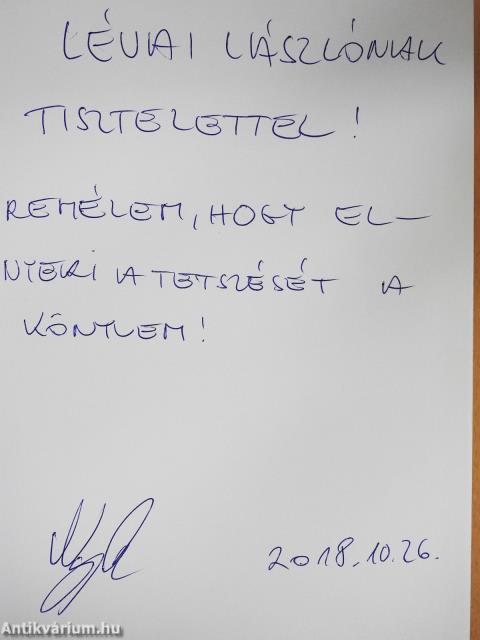 LÉVAI LÁSZLÓNAK
TISZTELETTEL!
REMÉLEM, HOGY EL-
NYERI A TETSZÉSÉT A
KÖNYVEM!
2018.10.26.
Antikvárium.hu